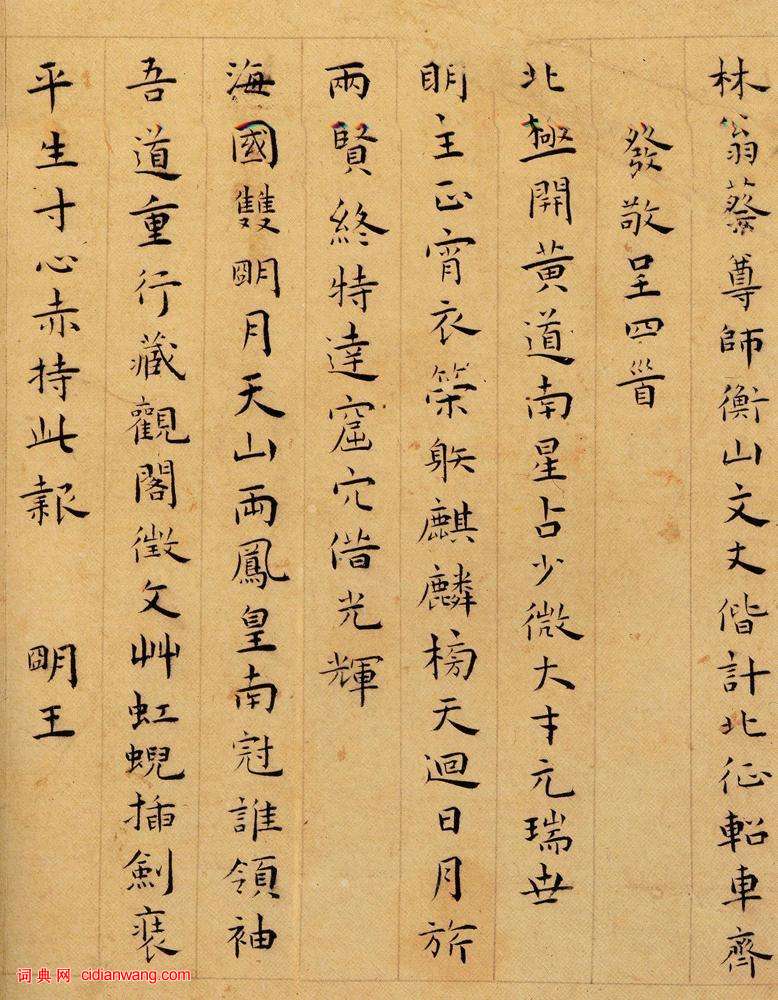 林翁蔡尊師衡山文丈偕計北征軺車齊
發敬呈四首
北極開黃道南星占少微大才元瑞世
明主正宵衣榮躱麒麟榜天迴日月旂
兩賢終特達窟穴偕光輝
海國雙明月天山兩鳳皇南冠誰領袖
吾道重行藏觀閣徵文艸虹蜺插劍裝
平生寸心赤持此報　明王
词典网 cidianwang.com